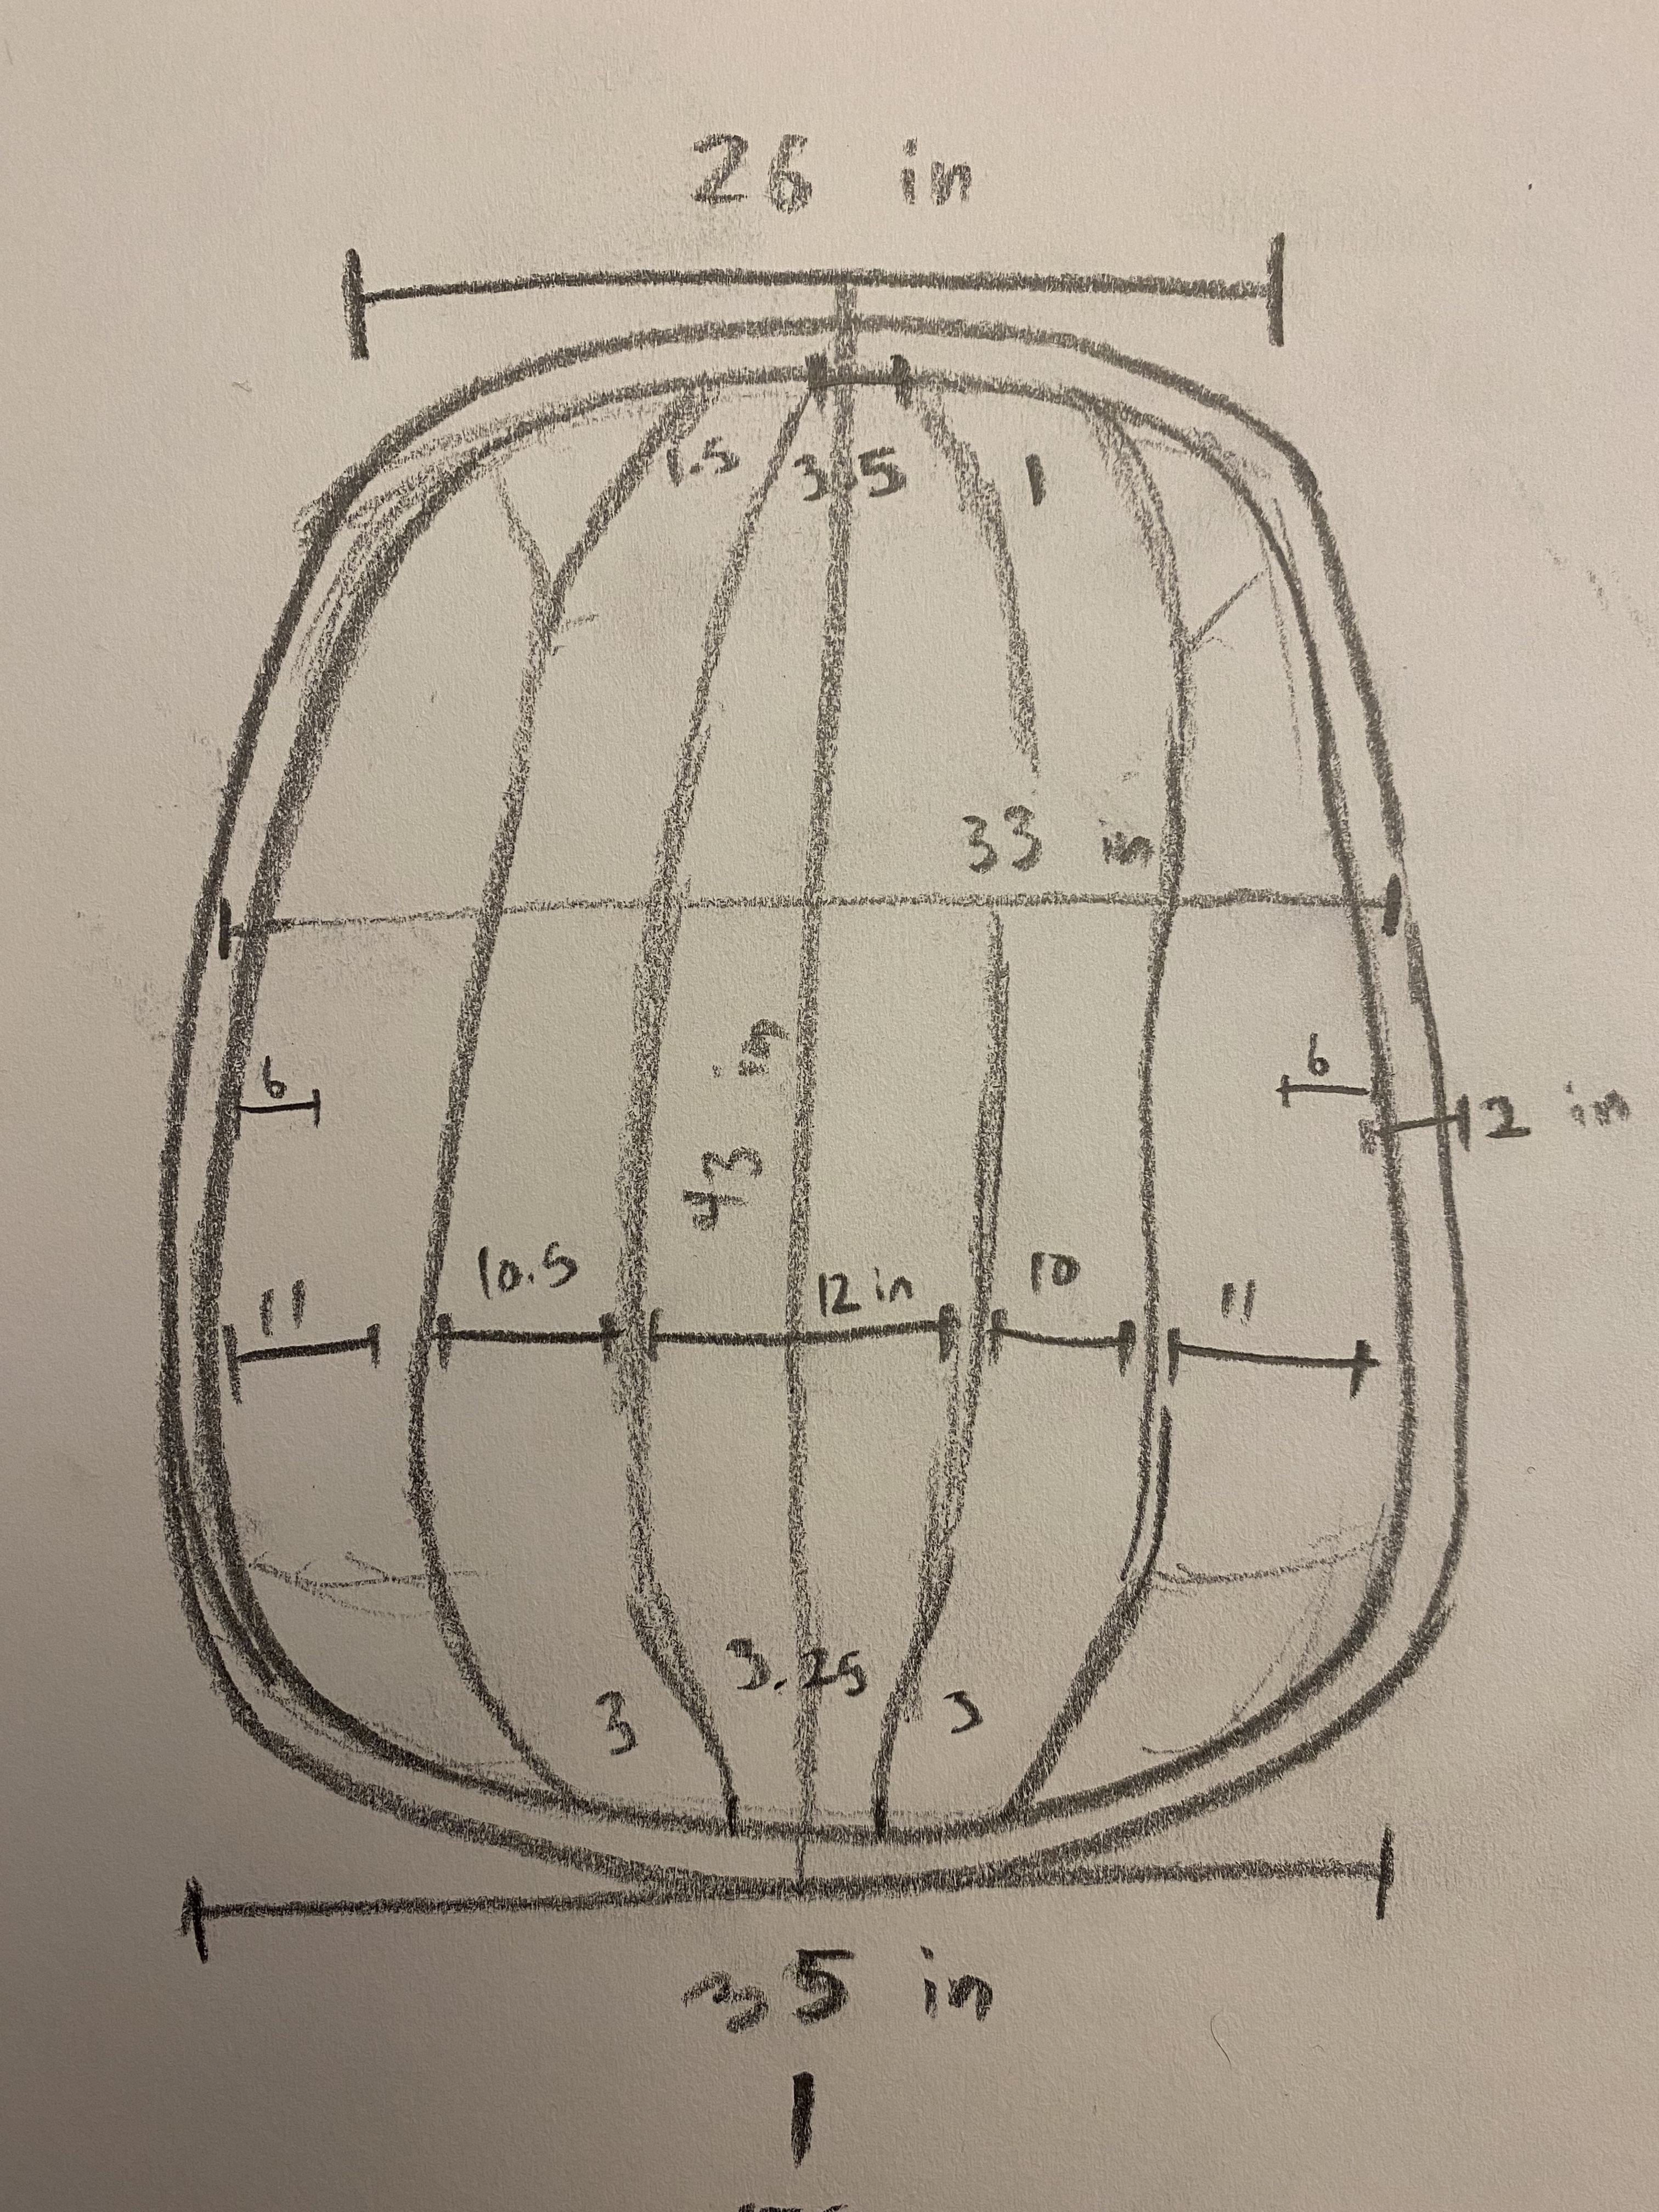 26 in
1.5 3.5 1
33 in
43 in
6
6
2 in
10.5
12 in
10
11
11
3.25
3
3
35 in